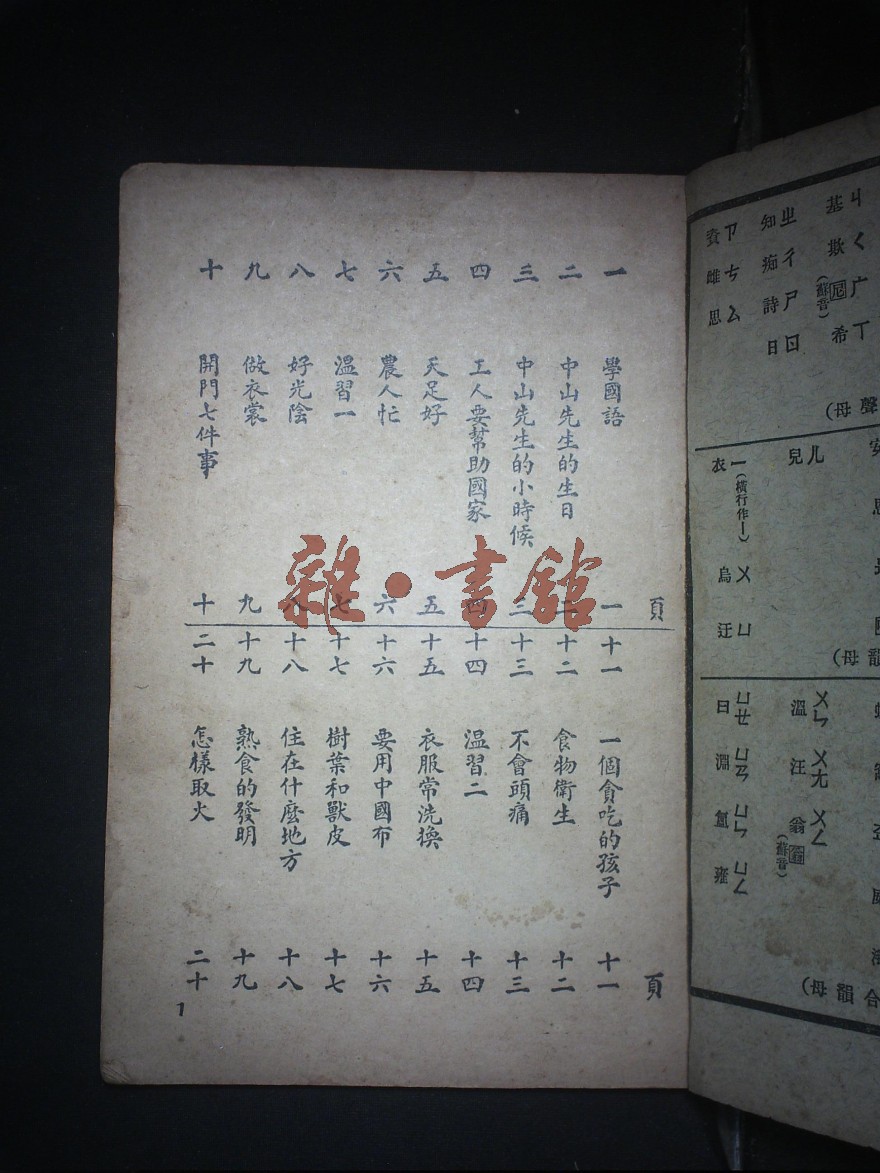 一 學國語 一
二 中山先生的生日 二
三 中山先生的小時候 三
四 工人要幫助國家 四
五 天足好 五
六 農人忙 六
七 溫習一 七
八 好光陰 八
九 做衣裳 九
十 開門七件事 十
頁
十一 一個貪吃的孩子 十一
十二 食物衛生 十二
十三 不會頭痛 十三
十四 温習二 十四
十五 衣服常洗換 十五
十六 要用中國布 十六
十七 樹葉和獸皮 十七
十八 住在什麼地方 十八
十九 熟食的發明 十九
二十 怎樣取火 二十
頁
1
雜·書館
ㄐ ㄑ 广 ㄒ
基 欺 (蘇音) 希
ㄓ ㄔ ㄕ ㄖ
知 痴 詩 日
ㄗ ㄘ ㄙ
資 雌 思
聲母)
ㄦ
兒
一(橫行作丨) ㄨ ㄩ
衣 烏 迂
韻母)
ㄨㄣ ㄨㄤ ㄨㄥ
溫 汪 翁 (蘇音)
ㄩㄝ ㄩㄢ ㄩㄣ ㄩㄥ
曰 淵 氳 雍
合韻母)